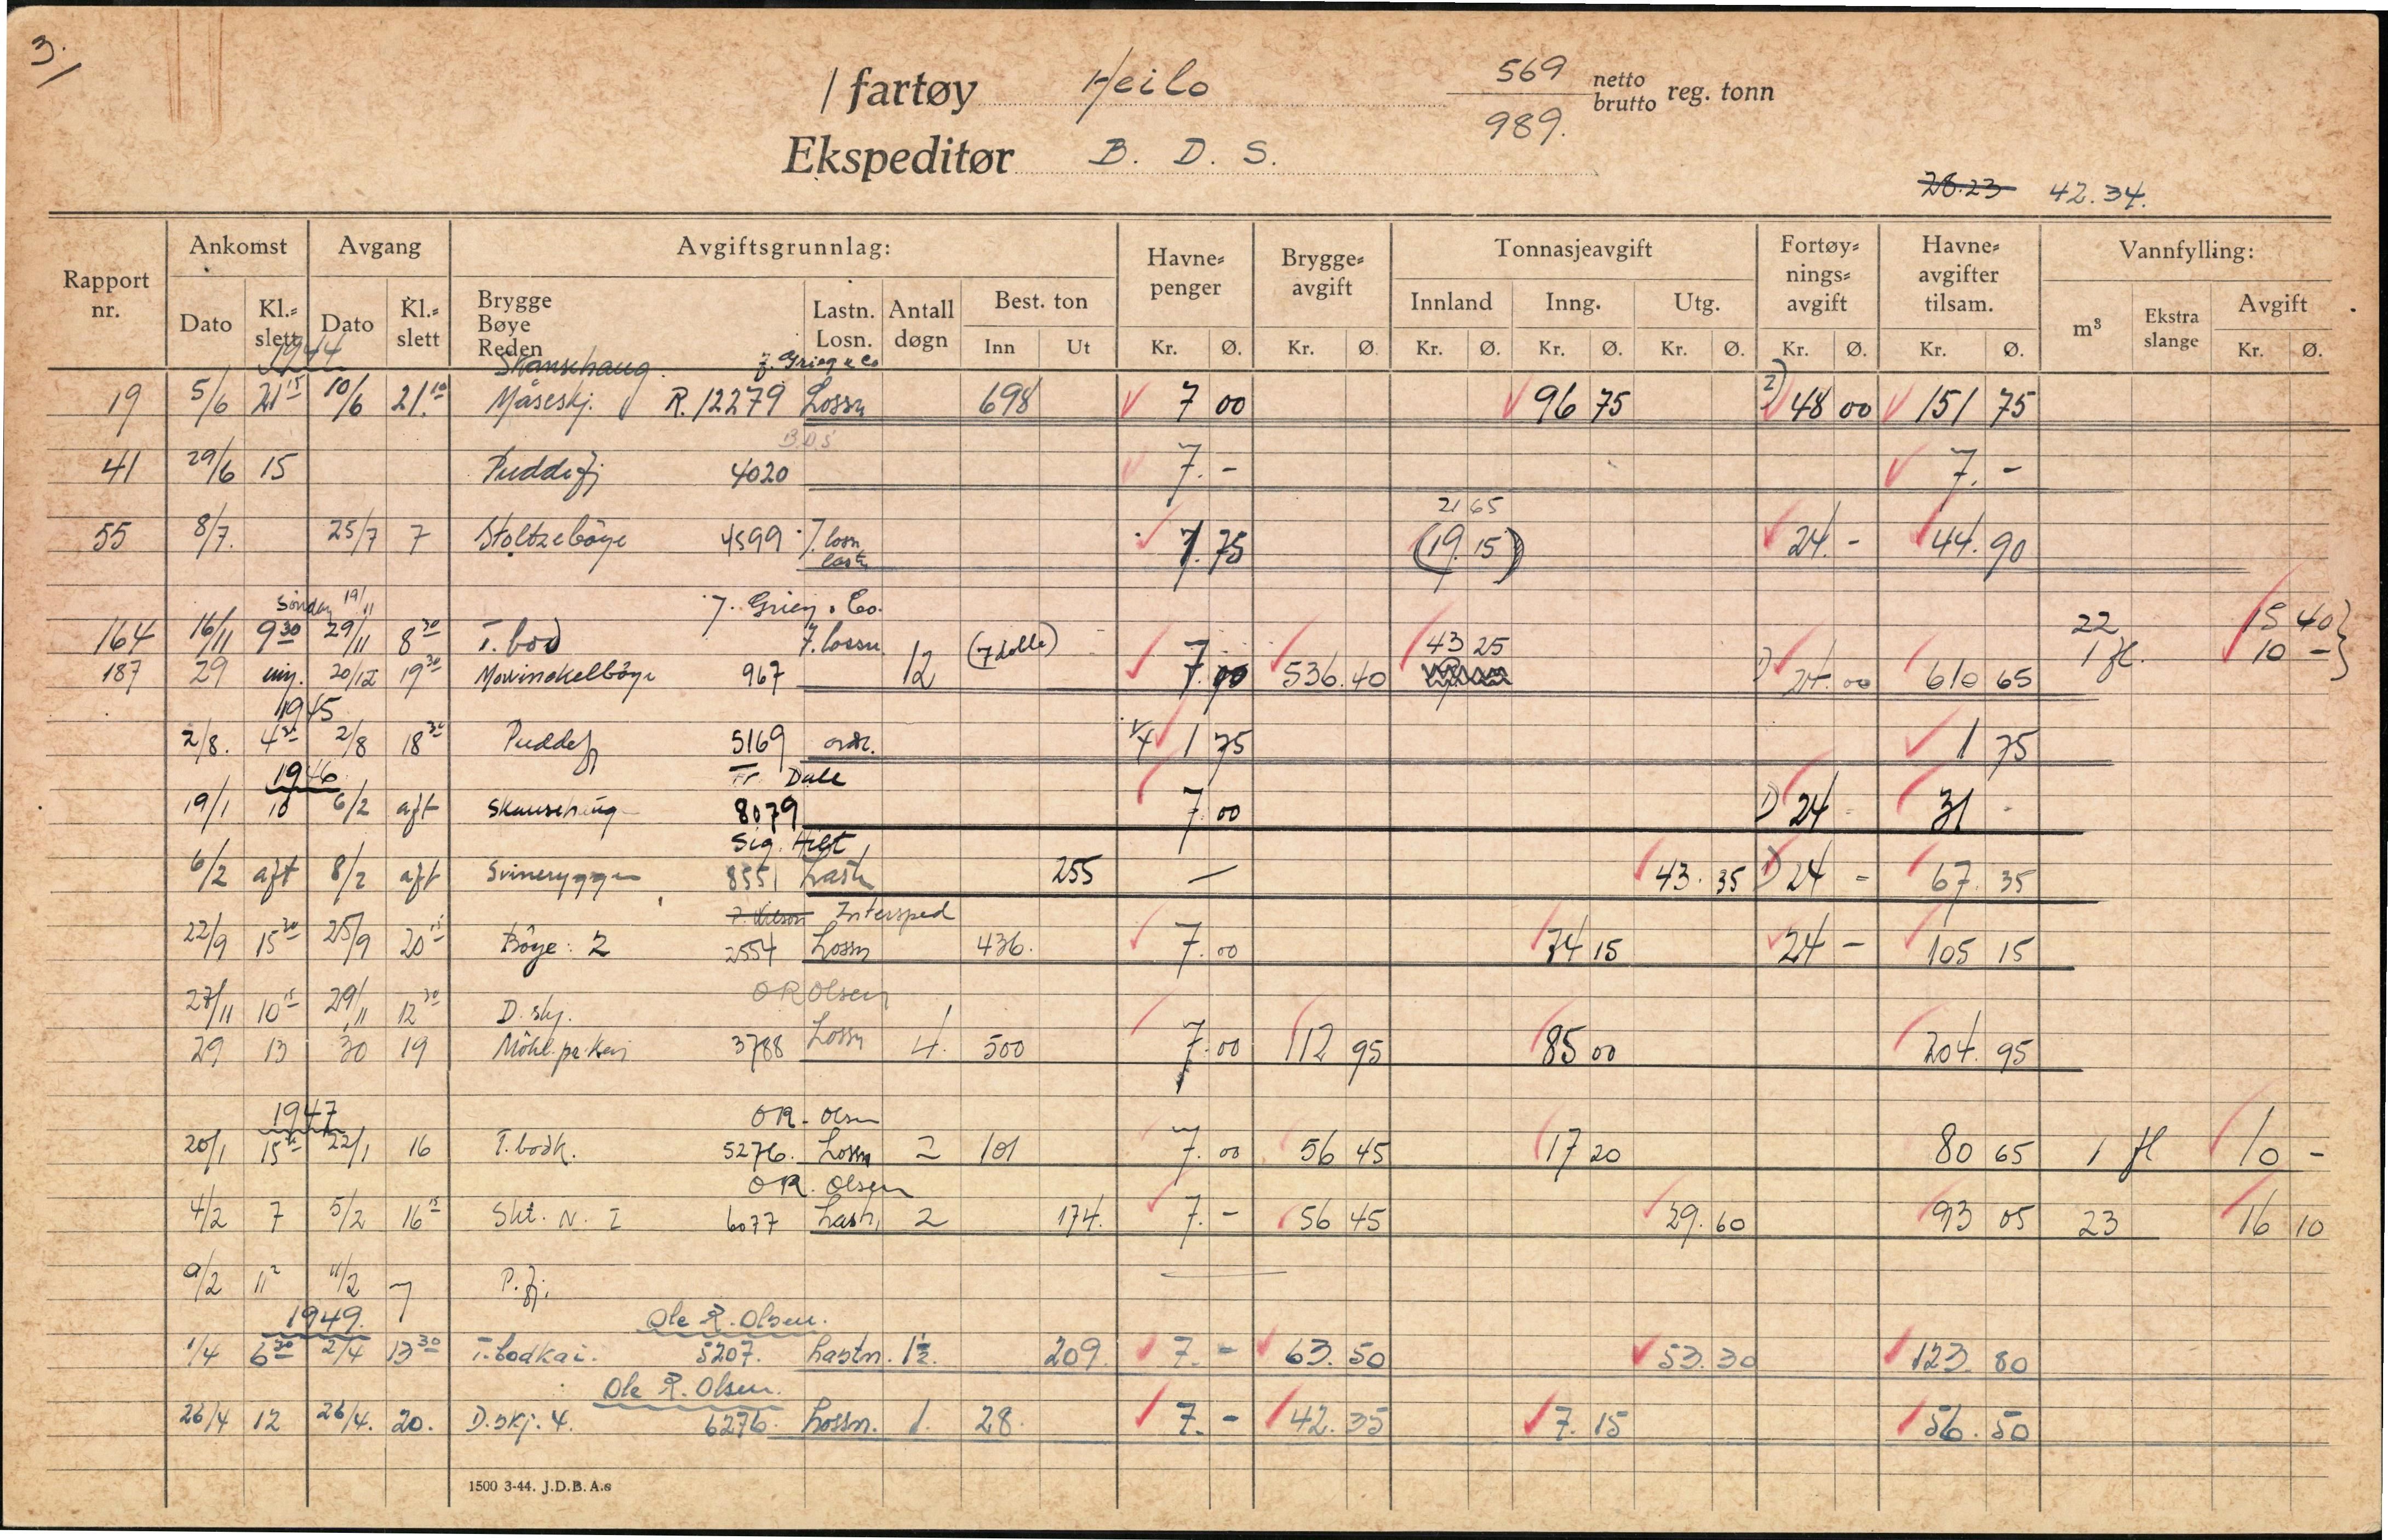 3.
/ fartøy Heilo 569 netto
989. brutto reg. tonn
Ekspeditør B. D. S.
28.23 42.34.
Rapport nr. Ankomst Avgang Avgiftsgrunnlag: Havne-penger Brygge-avgift Tonnasjeavgift Fortøy-nings-avgift Havne-avgifter tilsam. Vannfylling:
Dato Kl.-slett Dato Kl.-slett Brygge Bøye Reden Lastn. Losn. Antall døgn Best. ton Innland Inng. Utg. m³ Ekstra slange Avgift
Inn Ut Kr. Ø. Kr. Ø. Kr. Ø. Kr. Ø. Kr. Ø. Kr. Ø. Kr. Ø. Kr. Ø.
1944 J. Grieg & Co
19 5/6 21 15 10/6 21.10 Måseskj. R. 12279 Lossn 698 7 00 96 75 2) 48 00 151 75
B.D.S
41 29/6 15 Puddefj 4020 7.- 7.-
21 65
55 8/7. 25/7 7 Stoltzebøye 4599 7. losn lastn 7.75 (19.15) 24.- 44.90
Søndag 19/11 J. Grieg & Co.
164 16/11 9 30 29/11 8 30 T. bod 7. lossn (7 dolle) 43 25 22 15 40
187 29 20/12 19 30 967 12 7. 536.40 1) 24.00 610 65 1 fl. 10 -
1945
2/8. 4 2/8 18 30 Puddefj 5169 1/4 1 75 1 75
1946 Fr. Dale
19/1 10 6/2 aft Skansehaug 8079 7.00 1) 24 - 31 -
Sig. Hilt
6/2 aft 8/2 aft Svineryggen 8551 Lastn 255 — 43.35 1) 24 - 67.35
Intersped
22/9 15 30 25/9 20 15 Bøye: 2 2554 Lossn 436. 7.00 74 15 24 - 105 15
OR Olsen
27/11 10 15 29/11 12 30 D. skj.
29 13 30 19 Møhl.pr. kai 3788 Lossn 4. 500 7.00 112 95 85 00 204.95
1947 OR. Olsen
20/1 15 22/1 16 T. bodk. 5276. Lossn 2 101 7.00 56 45 17 20 80 65 1 fl 10 -
OR. Olsen
4/2 7 5/2 16 15 Skt. N. I 6077 Lastn 2 174. 7.- 56 45 29.60 93 05 23 16 10
9/2 11 11/2 7 P. fj.
1949. Ole R. Olsen.
1/4 6 30 2/4 13 30 T. bodkai. 5207. Lastn. 1½. 209 7.- 63.50 53.30 123 80
Ole R. Olsen.
26/4 12 26/4. 20. D. skj. 4. 6276. Lossn. 1. 28. 7.- 42.35 7.15 56.50
1500 3-44. J.D.B. A.s